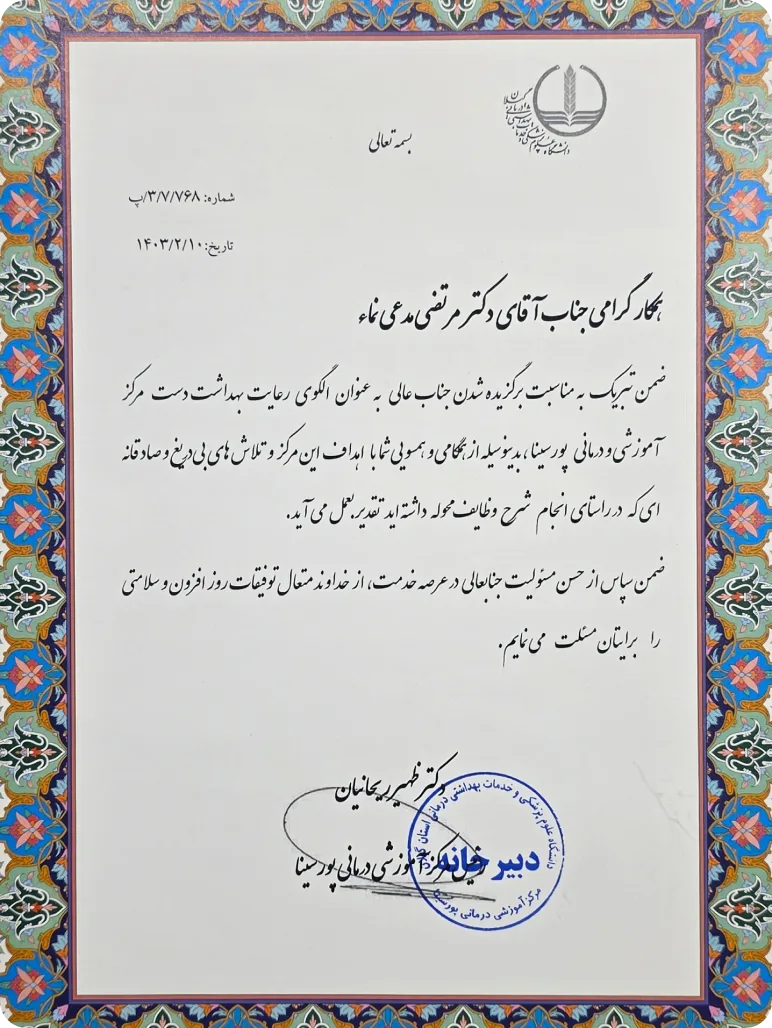 دانشگاه علوم پزشکی و خدمات بهداشتی درمانی گیلان
بسمه تعالی
شماره: ۳/۷/۷۶۸/پ
تاریخ: ۱۴۰۳/۲/۱۰
همکار گرامی جناب آقای دکتر مرتضی مدعی نماء
ضمن تبریک به مناسبت برگزیده شدن جناب عالی به عنوان الگوی رعایت بهداشت دست مرکز
آموزشی و درمانی پورسینا، بدینوسیله از همگامی و همسویی شما با اهداف این مرکز و تلاش های بی دریغ و صادقانه
ای که در راستای انجام شرح وظایف محوله داشته اید تقدیر بعمل می آید.
ضمن سپاس از حسن مسئولیت جنابعالی در عرصه خدمت، از خداوند متعال توفیقات روز افزون و سلامتی
را برایتان مسئلت می نمایم.
دکتر ظهیر ریحانیان
رئیس مرکز آموزشی درمانی پورسینا
دانشگاه علوم پزشکی و خدمات بهداشتی درمانی استان گیلان
دبیرخانه
مرکز آموزشی درمانی پورسینا